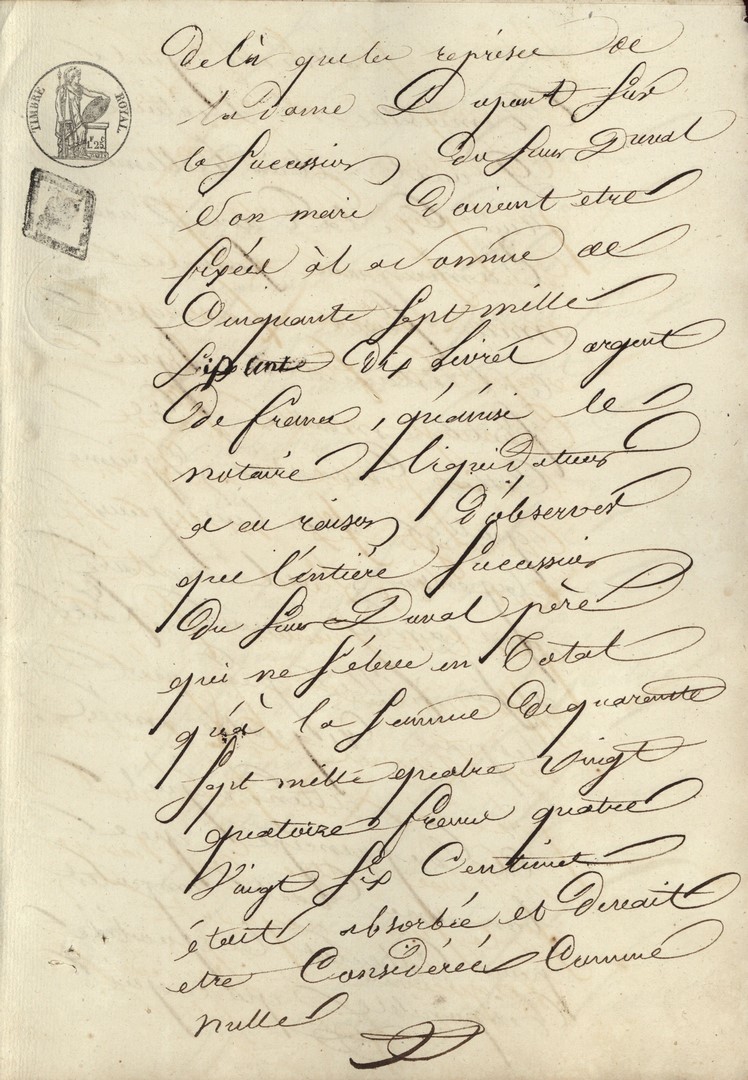 TIMBRE ROYAL
1F. 25c.
De là que les reprises de
la Dame Dupont sur
la Succession du Sieur Duval
Son mari Doivent etre
fixées à la Somme de
Cinquante Sept mille
Dix Livres argent
De france, qu'ainsi le
notaire liquidateur
a eu raison D'observer
que l'entière Succession
Du Sieur Duval père
qui ne s'éleve en Total
qu'à la Somme De quarante
Sept mille quatre Vingt
quatorze francs quatre
Vingt Six Centimes
était absorbée et Devait
etre Considérée Comme
nulle